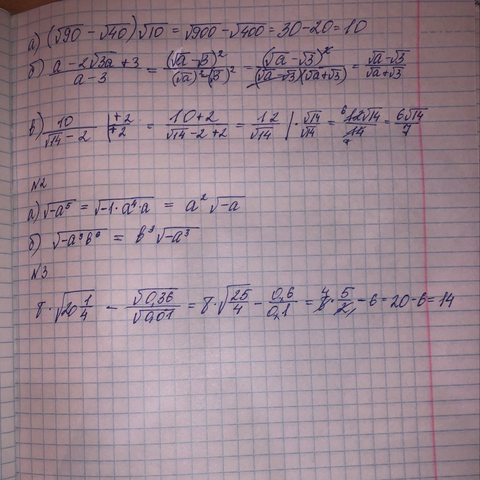 а) (√90 − √40)√10 = √900 − √400 = 30 − 20 = 10
б) (a − 2√3a + 3)/(a − 3) = (√a − √3)²/((√a)² − (√3)²) = (√a − √3)²/((√a − √3)(√a + √3)) = (√a − √3)/(√a + √3)
в) 10/(√14 − 2) | +2/+2 = (10 + 2)/(√14 − 2 + 2) = 12/√14 | · √14/√14 = 12√14/14 = 6√14/7
№2
а) √−a⁵ = √−1·a⁴·a = a² √−a
б) √−a³b⁶ = b³ √−a³
№3
8 · √20 1/4 − √0,36/√0,01 = 8 · √25/4 − 0,6/0,1 = 8 · 5/2 − 6 = 20 − 6 = 14